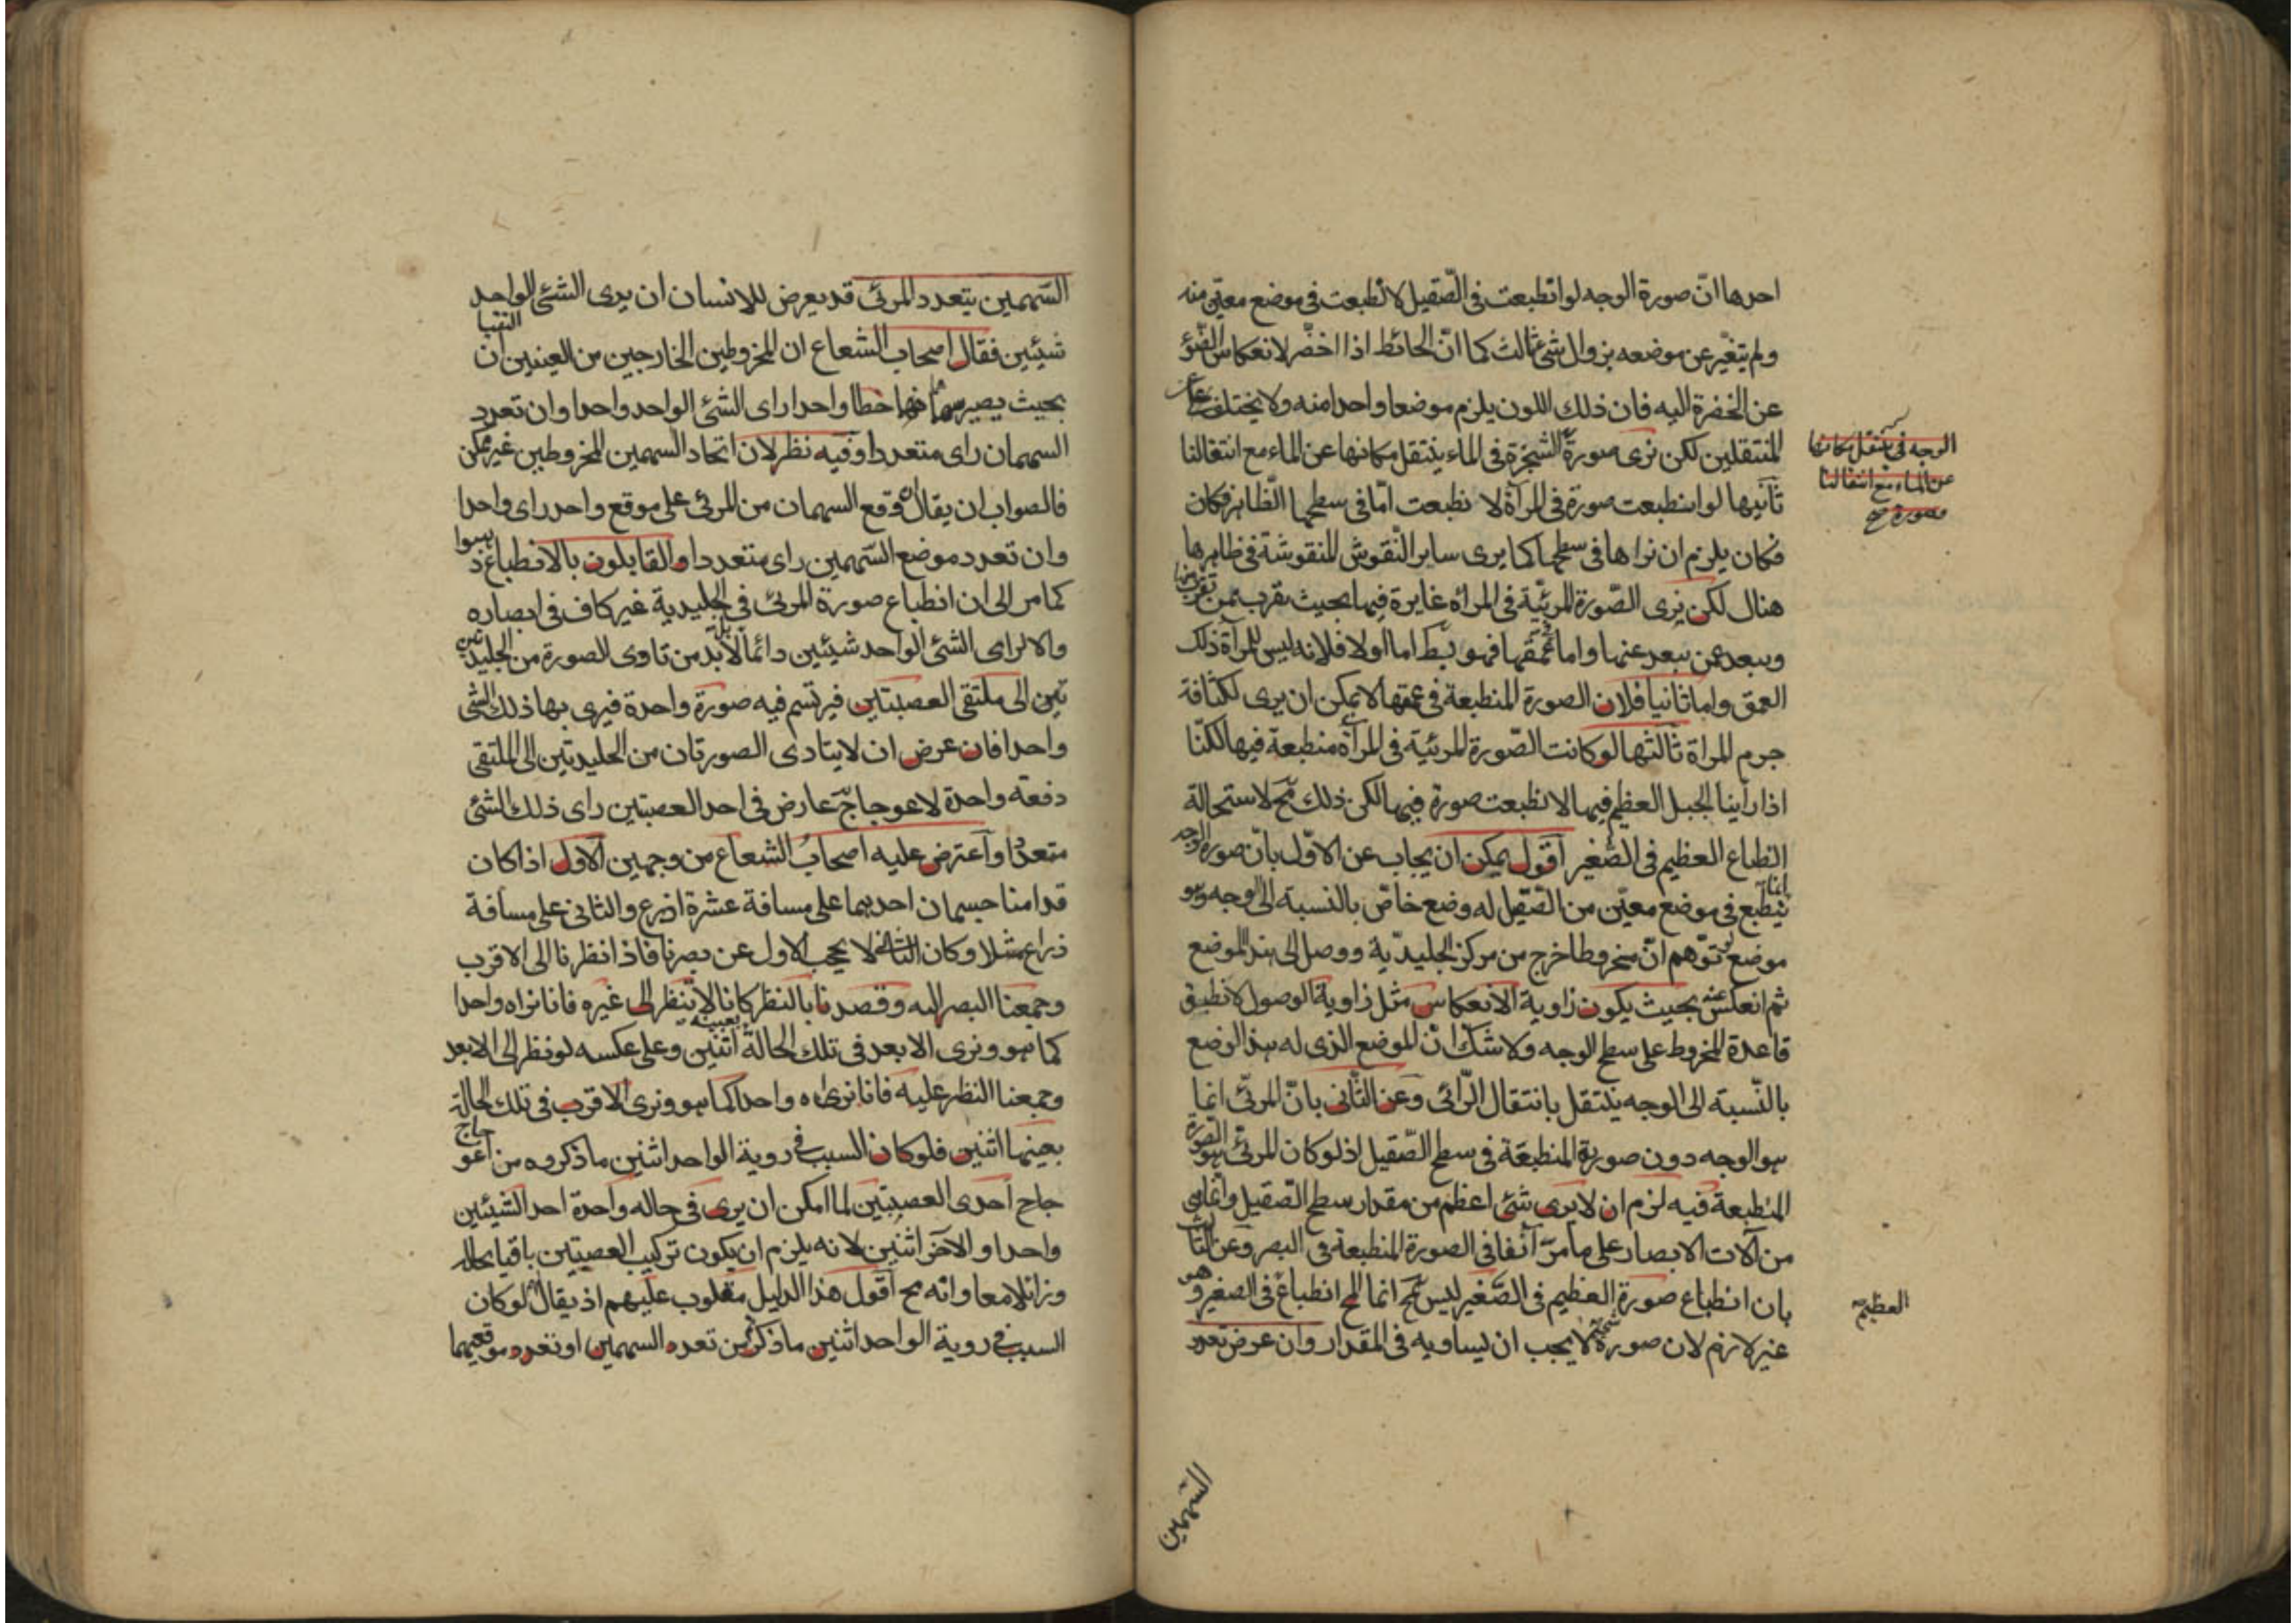 احدها انّ صورة الوجه لو انطبعت فى الصّقيل لانطبعت فى موضع معيّن منه
ولم يتغيّر عن موضعه بزوال شئ ثالث كما انّ الحائط اذا اخضّر لانعكاس الضّوء
عن الخضرة اليه فان ذلك اللون يلزم موضعا واحدا منه ولا يختلف على
المنتقلين لكن نرى صورة الشجرة فى الماء ينتقل مكانها عن الماء مع انتقالنا
الوجه فى ينتقل مكانها
عن الماء مع انتقالنا
ثانيها لو انطبعت صورة فى المرآة لانطبعت امّا فى سطحها الظّاهر فكان
فكان يلزم ان نراها فى سطحها كما يرى ساير النّقوش المنقوشة فى ظاهرها
هنال لكن نرى الصّورة المرئيّة فى المراة غايرة فيها بحيث يقرب ممن تقرب منها
ويبعد عمن يبعد عنها واما عمقها فهو بط اما اولا فلانه ليس للمرآة ذلك
العمق واما ثانيا فلان الصورة المنطبعة فى عمقها لا يمكن ان يرى لكثافة
جرم المراة ثالثها لو كانت الصّورة المرئيّة فى المرآة منطبعة فيها لكنّا
اذا رأينا الجبل العظيم فيها لانطبعت صورة فيها لكن ذلك مح لاستحالة
انطباع العظيم فى الصّغير اقول يمكن ان يجاب عن الاوّل بانّ صورة الوجه
انما
ينطبع فى موضع معيّن من الصّقيل له وضع خاصّ بالنسبة الى الوجه وهو
موضع لو توّهم انّ مخروطا خرج من مركز الجليديّة ووصل الى هذا الموضع
ثم انعكس عنه بحيث يكون زاوية الانعكاس مثل زاوية الوصول لانطبق
قاعدة المخروط على سطح الوجه ولا شك ان الموضع الذى له هذا الوضع
بالنّسبة الى الوجه ينتقل بانتقال الرّائى وعن الثّانى بانّ المرئى انما
هو الوجه دون صورته المنطبعة فى سطح الصّقيل اذ لو كان المرئى هو الصّورة
المنطبعة فيه لزم ان لا يرى شئ اعظم من مقدار سطح الصّقيل وانما هى
من آلات الابصار على ما مرّ آنفا فى الصورة المنطبعة فى البصر وعن الثالث
بان انطباع صورة العظيم فى الصّغير ليس مح انما المح انطباع فى الصغير وهو
العظيم صح
غير لازم لان صورة لا يجب ان يساويه فى المقدار وان عرض تعدد
السّهمين
السّهمين يتعدد المرئى قد يعرض للانسان ان يرى الشئ الواحد
شيئين فقال اصحاب الشعاع ان المخروطين الخارجين من العينين ان التقيا
بحيث يصير سهماهما خطا واحدا راى الشئ الواحد واحدا وان تعدد
السهمان راى متعددا وفيه نظر لان اتحاد السهمين للمخروطين غير ممكن
فالصواب ان يقال ان وقع السهمان من المرئى على موقع واحد راى واحدا
وان تعدد موضع السّهمين راى متعددا والقايلون بالانطباع ذهبوا
كما مر الى ان انطباع صورة المرئى فى الجليدية غير كاف فى ابصاره
والا لراى الشئ الواحد شيئين دائما بل لا بد من تاوى الصورة من الجليد
تين الى ملتقى العصبتين فيرتسم فيه صورة واحدة فيرى بها ذلك الشئ
واحدا فان عرض ان لا يتادى الصورتان من الجليديتين الى الملتقى
دفعة واحدة لاعوجاج عارض فى احد العصبتين راى ذلك الشئ
متعددا واعترض عليه اصحاب الشعاع من وجهين الاول اذا كان
قدامنا جسمان احدهما على مسافة عشرة اذرع والثانى على مسافة
ذراع مثلا وكان الثانى لا يحجب الاول عن بصرنا فاذا نظرنا الى الاقرب
وجمعنا البصر اليه وقصدنا بالنظر كانا لا ننظر الى غيره فانا نراه واحدا
كما هو ونرى الابعد فى تلك الحالة بعينه اثنين وعلى عكسه لو نظر الى الابعد
وجمعنا النظر عليه فانا نراه واحدا كما هو ونرى الاقرب فى تلك الحالة
بعينها اثنين فلو كان السبب فى روية الواحد اثنين ما ذكروه من اعو
جاج احدى العصبتين لما امكن ان يرى فى حاله واحدة احد الشيئين
واحدا والآخر اثنين لانه يلزم ان يكون تركيب العصبتين باقيا بحاله
وزائلا معا وانه مح اقول هذا الدليل مقلوب عليهم اذ يقال لو كان
السبب فى روية الواحد اثنين ما ذكرتم من تعدد السهمين او تعدد موقعيهما